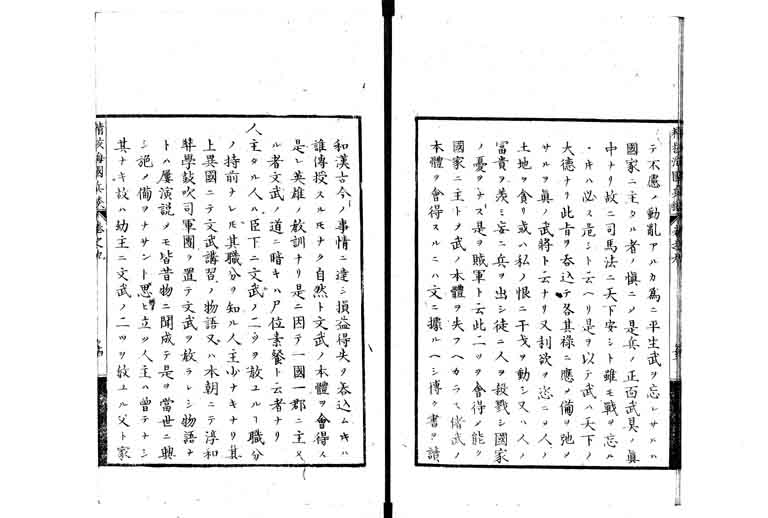 テ不應ノ動亂アルカ爲ニ平生武ヲ忘レサルハ
國家ニ主タル者ノ愼ニノ是兵ノ正面武具ノ眞
中ナリ故ニ司馬法ニ天下安シト雖モ戰ヲ忘ル
キハ必ス危シト云ヘリ是ヲ以テ武ハ天下ノ
大德ナリ此旨ヲ呑込テ各其祿ニ應ノ備ヲ弛メ
サルヲ眞ノ武將ト云ナリ又利欲ヲ恣ニノ人ノ
土地ヲ貪リ或ハ私ノ恨ニ干戈ヲ動シ又ハ人ノ
冨貴ヲ羨ミ妄ニ兵ヲ出シ徒ニ人ヲ殺戮シ國家
ノ憂ヲナス是ヲ賊軍ト云此二ツヲ會得ノ能ク
國家ニ主トノ武ノ本體ヲ失フヘカラス偖武ノ
本體ヲ會得スルニハ文ニ據ルヘシ博ク書ヲ讀
和漢古今ノ事情ニ達シ損益得失ヲ呑込ムキハ
誰傳授スルモナク自然ト文武ノ本體ヲ會得ス
是レ英雄ノ敎訓ナリ是ニ因テ一國一郡ニ主タ
ル者文武ノ道ニ暗キハ尸位素餐ト云者ナリ
人主タル人ハ臣下ニ文武ノ二ツヲ敎ユルヿ職分
ノ持前ナレモ其職分ヲ知ル人主少ナキナリ其
上異國ニテ文武講習ノ物語又ハ本朝ニテ淳和
弉學鼓吹司軍團ヲ置テ文武ヲ敎ラレシ物語ナ
トハ屢演説ノモ皆昔物ニ聞成テ是ヲ當世ニ興
シ施ノ備ヲナサント思ヒ立ツ人主ハ曾テナシ
其ナキ故ハ幼主ニ文武ノ二ツヲ敎ユル父ト家
精校海國兵談 卷之九